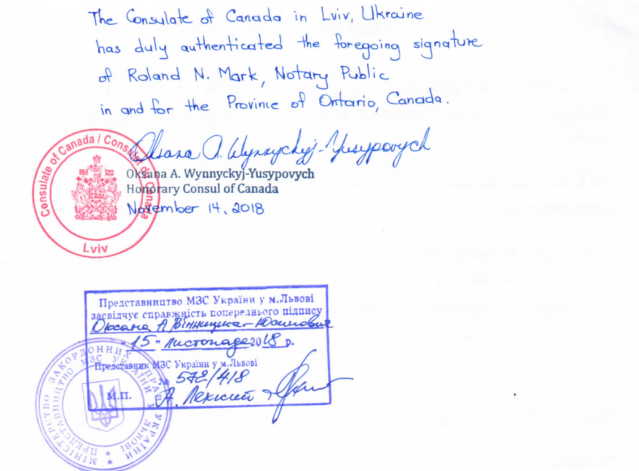 The Consulate of Canada in Lviv, Ukraine
has duly authenticated the foregoing signature
of Roland N. Mark, Notary Public
in and for the Province of Ontario, Canada.
Oksana A. Wynnyckyj-Yusypovych
Consulate of Canada / Consulat du Canada
Lviv
Oksana A. Wynnyckyj-Yusypovych
Honorary Consul of Canada
November 14, 2018
Представництво МЗС України у м.Львові
засвідчує справжність попереднього підпису
Оксана А
"15" листопада 2018 р.
Представник МЗС України у м.Львові
№ 572/418
М.П. А.
МІНІСТЕРСТВО ЗАКОРДОННИХ СПРАВ УКРАЇНИ
ПРЕДСТАВНИЦТВО МЗС УКРАЇНИ У ЛЬВОВІ